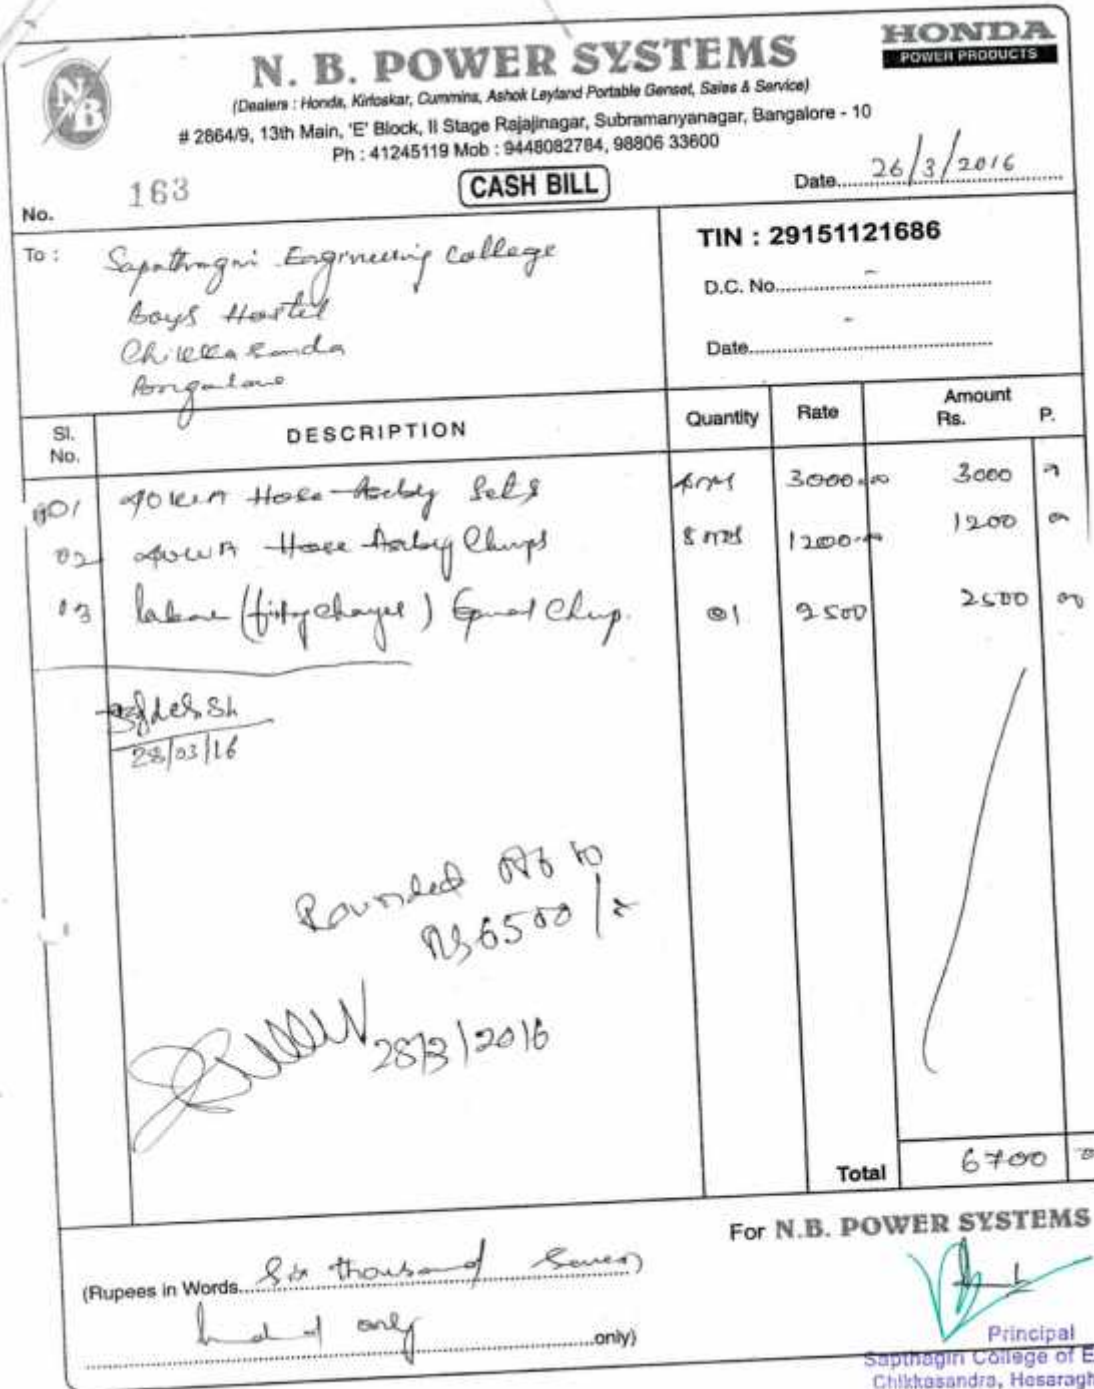 HONDA
POWER PRODUCTS
NB
N. B. POWER SYSTEMS
(Dealers : Honda, Kirloskar, Cummins, Ashok Leyland Portable Genset, Sales & Service)
# 2864/9, 13th Main, 'E' Block, II Stage Rajajinagar, Subramanyanagar, Bangalore - 10
Ph : 41245119 Mob : 9448082784, 98806 33600
No. 163
CASH BILL
Date. 26/3/2016
To : Sapathagni Engineering College
Boys Hostel
Chikkasanda
Bangalore
TIN : 29151121686
D.C. No. -
Date. -
Sl. No. DESCRIPTION Quantity Rate Amount Rs. P.
01 40 KVA Hose Sets 3000.00 3000
02 Hose 8 1200 1200
03 labour (fitting charges) 01 2500 2500 00
28/03/16
Rounded to
Rs 6500/-
28/3/2016
Total 6700
For N.B. POWER SYSTEMS
(Rupees in Words. Six thousand Seven
only only)
Principal
Sapthagiri College of E
Chikkasandra, Hesaragh